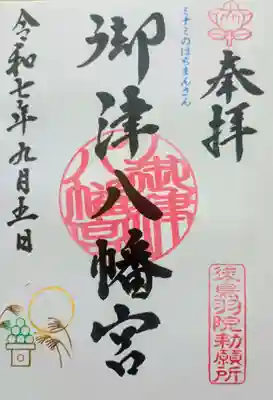 奉拝
後鳥羽院勅願所
ミナミのはちまんさん
御津八幡宮
令和七年九月五日